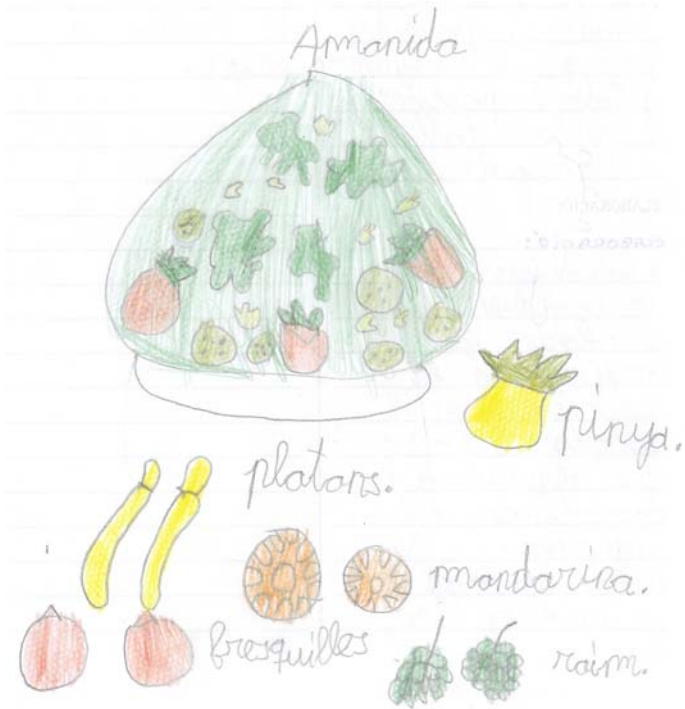 Amanida
pinya.
platans.
mandarina.
fresquilles
raim.